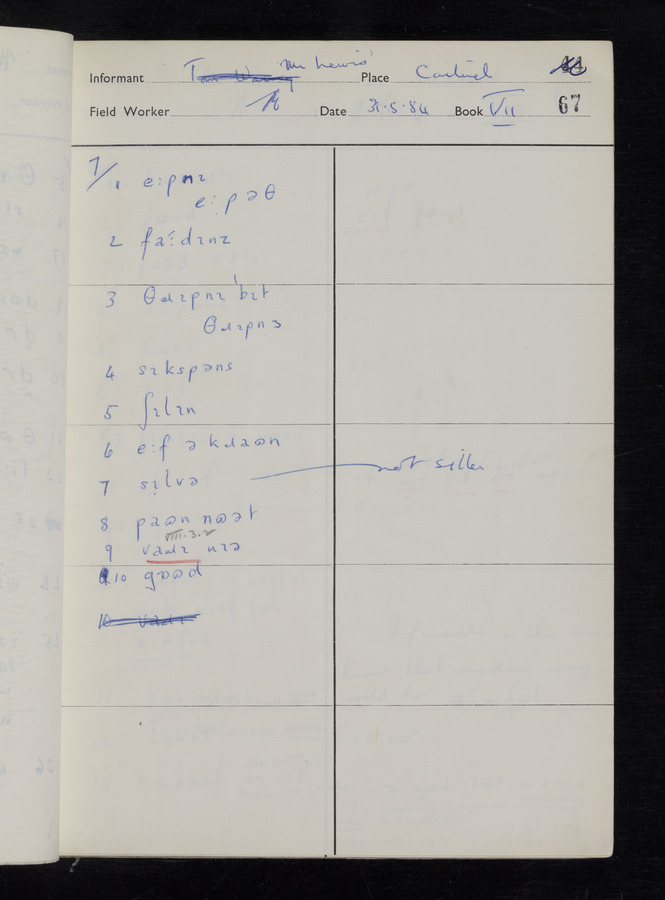 Informant Mr Lewis Place
Field Worker Date 31.5.84 Book VII 67
7/1 e:pnɪ
e:pəθ
2 fa:dɪnɪ
3 θɹɪpnɪ 'bɪt
θɹɪpns
4 sɪkspəns
5 ʃɪlɪn
6 e:f ə kɹaʊn
7 sɪlvə not siller
8 paʊn nʊət
VIII.3.2
9 nɪə
10 gʊʊd